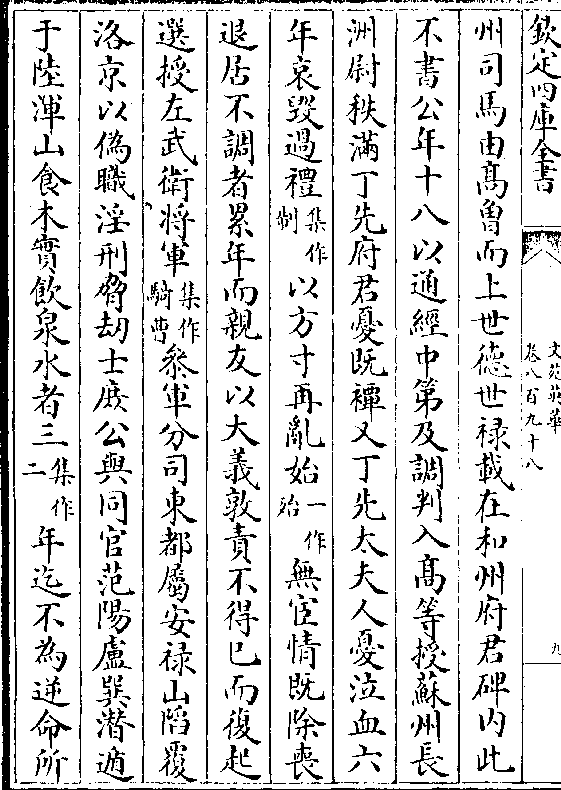 欽定四庫全書
文苑英華
卷八百九十八
九
州司馬由髙曾而上世德世禄載在和州府君碑内此
不書公年十八以通經中第及調判入髙等授蘇州長
洲尉秩滿丁先府君憂既禫又丁先太夫人憂泣血六
年哀毀過禮集作制以方寸再亂始一作殆無宦情既除喪
退居不調者累年而親友以大義敦責不得已而復起
選授左武衛將軍集作騎曹叅軍分司東都屬安禄山陷覆
洛京以偽職淫刑脅劫士庶公與同官范陽盧巽潛遁
于陸渾山食木實飲泉水者三集作二年迄不為逆命所